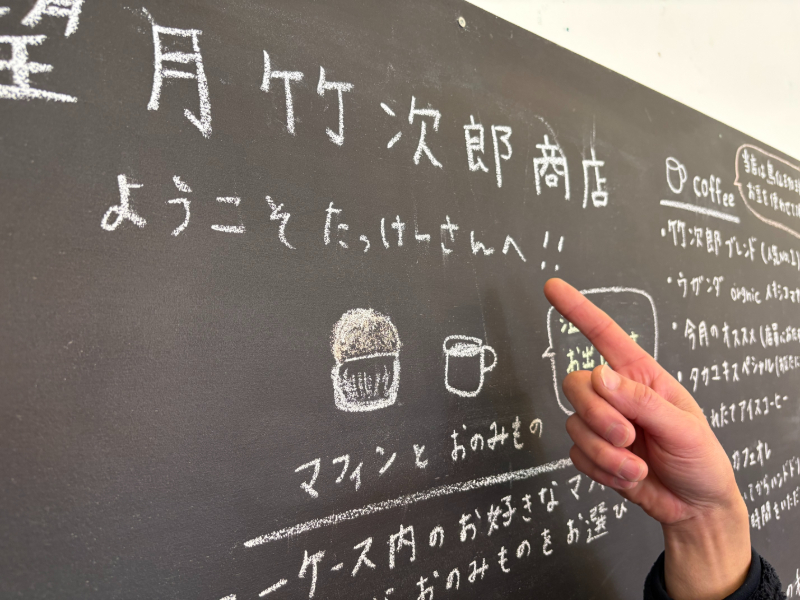 望月竹次郎商店
ようこそ たっけーさんへ!!
マフィンと おのみもの
ーケース内のお好きなマ
おのみものをお選び
お出
coffee
当店は
・竹次郎ブレンド(人気No.1)
・ウガンダ organic
・今月のオススメ(店
・タカユキスペシャル(
れたてアイスコーヒー
カフェオレ
てからハンドド
時間をいただ